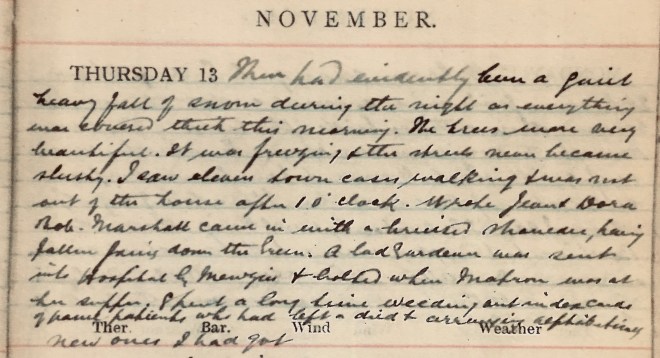 NOVEMBER.
THURSDAY 13 There had evidently been a quiet
heavy fall of snow during the night as everything
was covered thick this morning. The trees were very
beautiful. It was freezing & the streets never became
slushy. I saw eleven town cases walking & was not
out of the house after 1 o'clock. Wrote Jean & Dora
Rob. Marshall came in with a bruised shoulder, having
fallen going down the Green. A lad Gardener was sent
into Hospital by Menzies & bolted when Matron was at
her supper. I spent a long time weeding out index cards
of panel patients who had left or died & arranging alphabetically
Ther. Bar. Wind Weather
new ones I had got